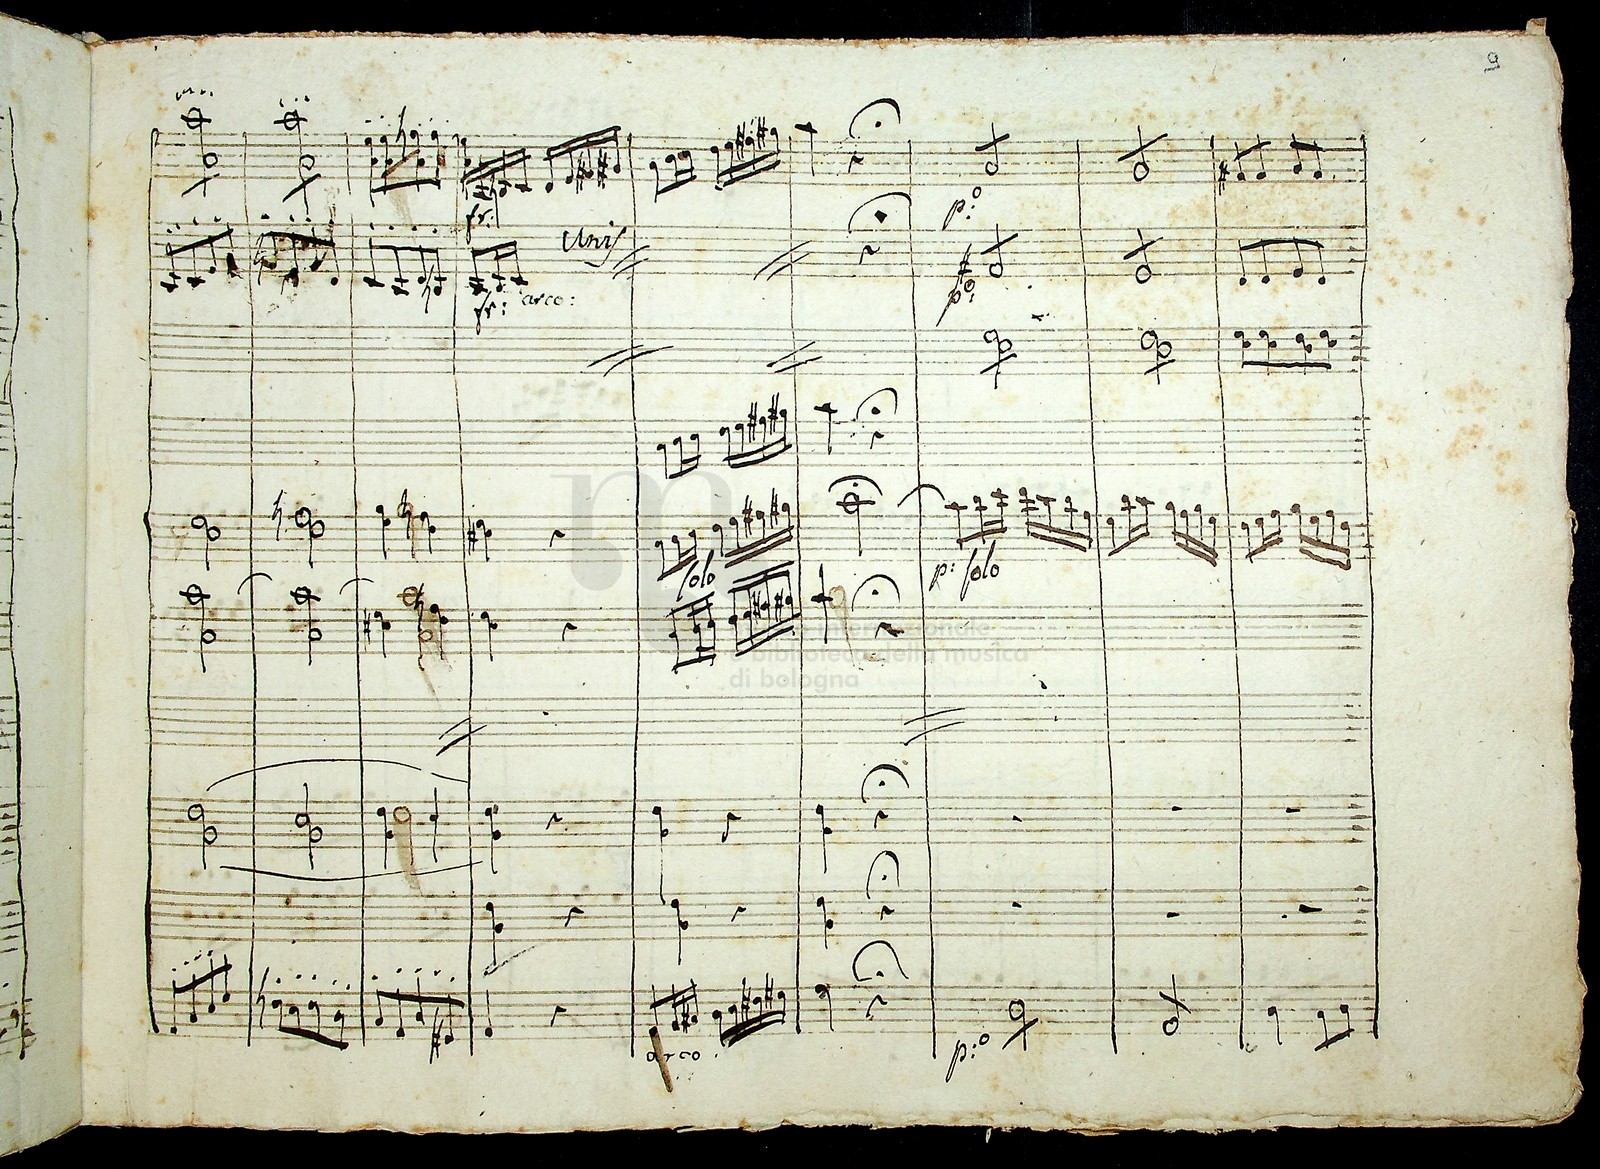 5
fr:
Unis
fr: arco:
p:o
p:o
solo
p: solo
museo internazionale
e biblioteca della musica
di bologna
arco
p:o